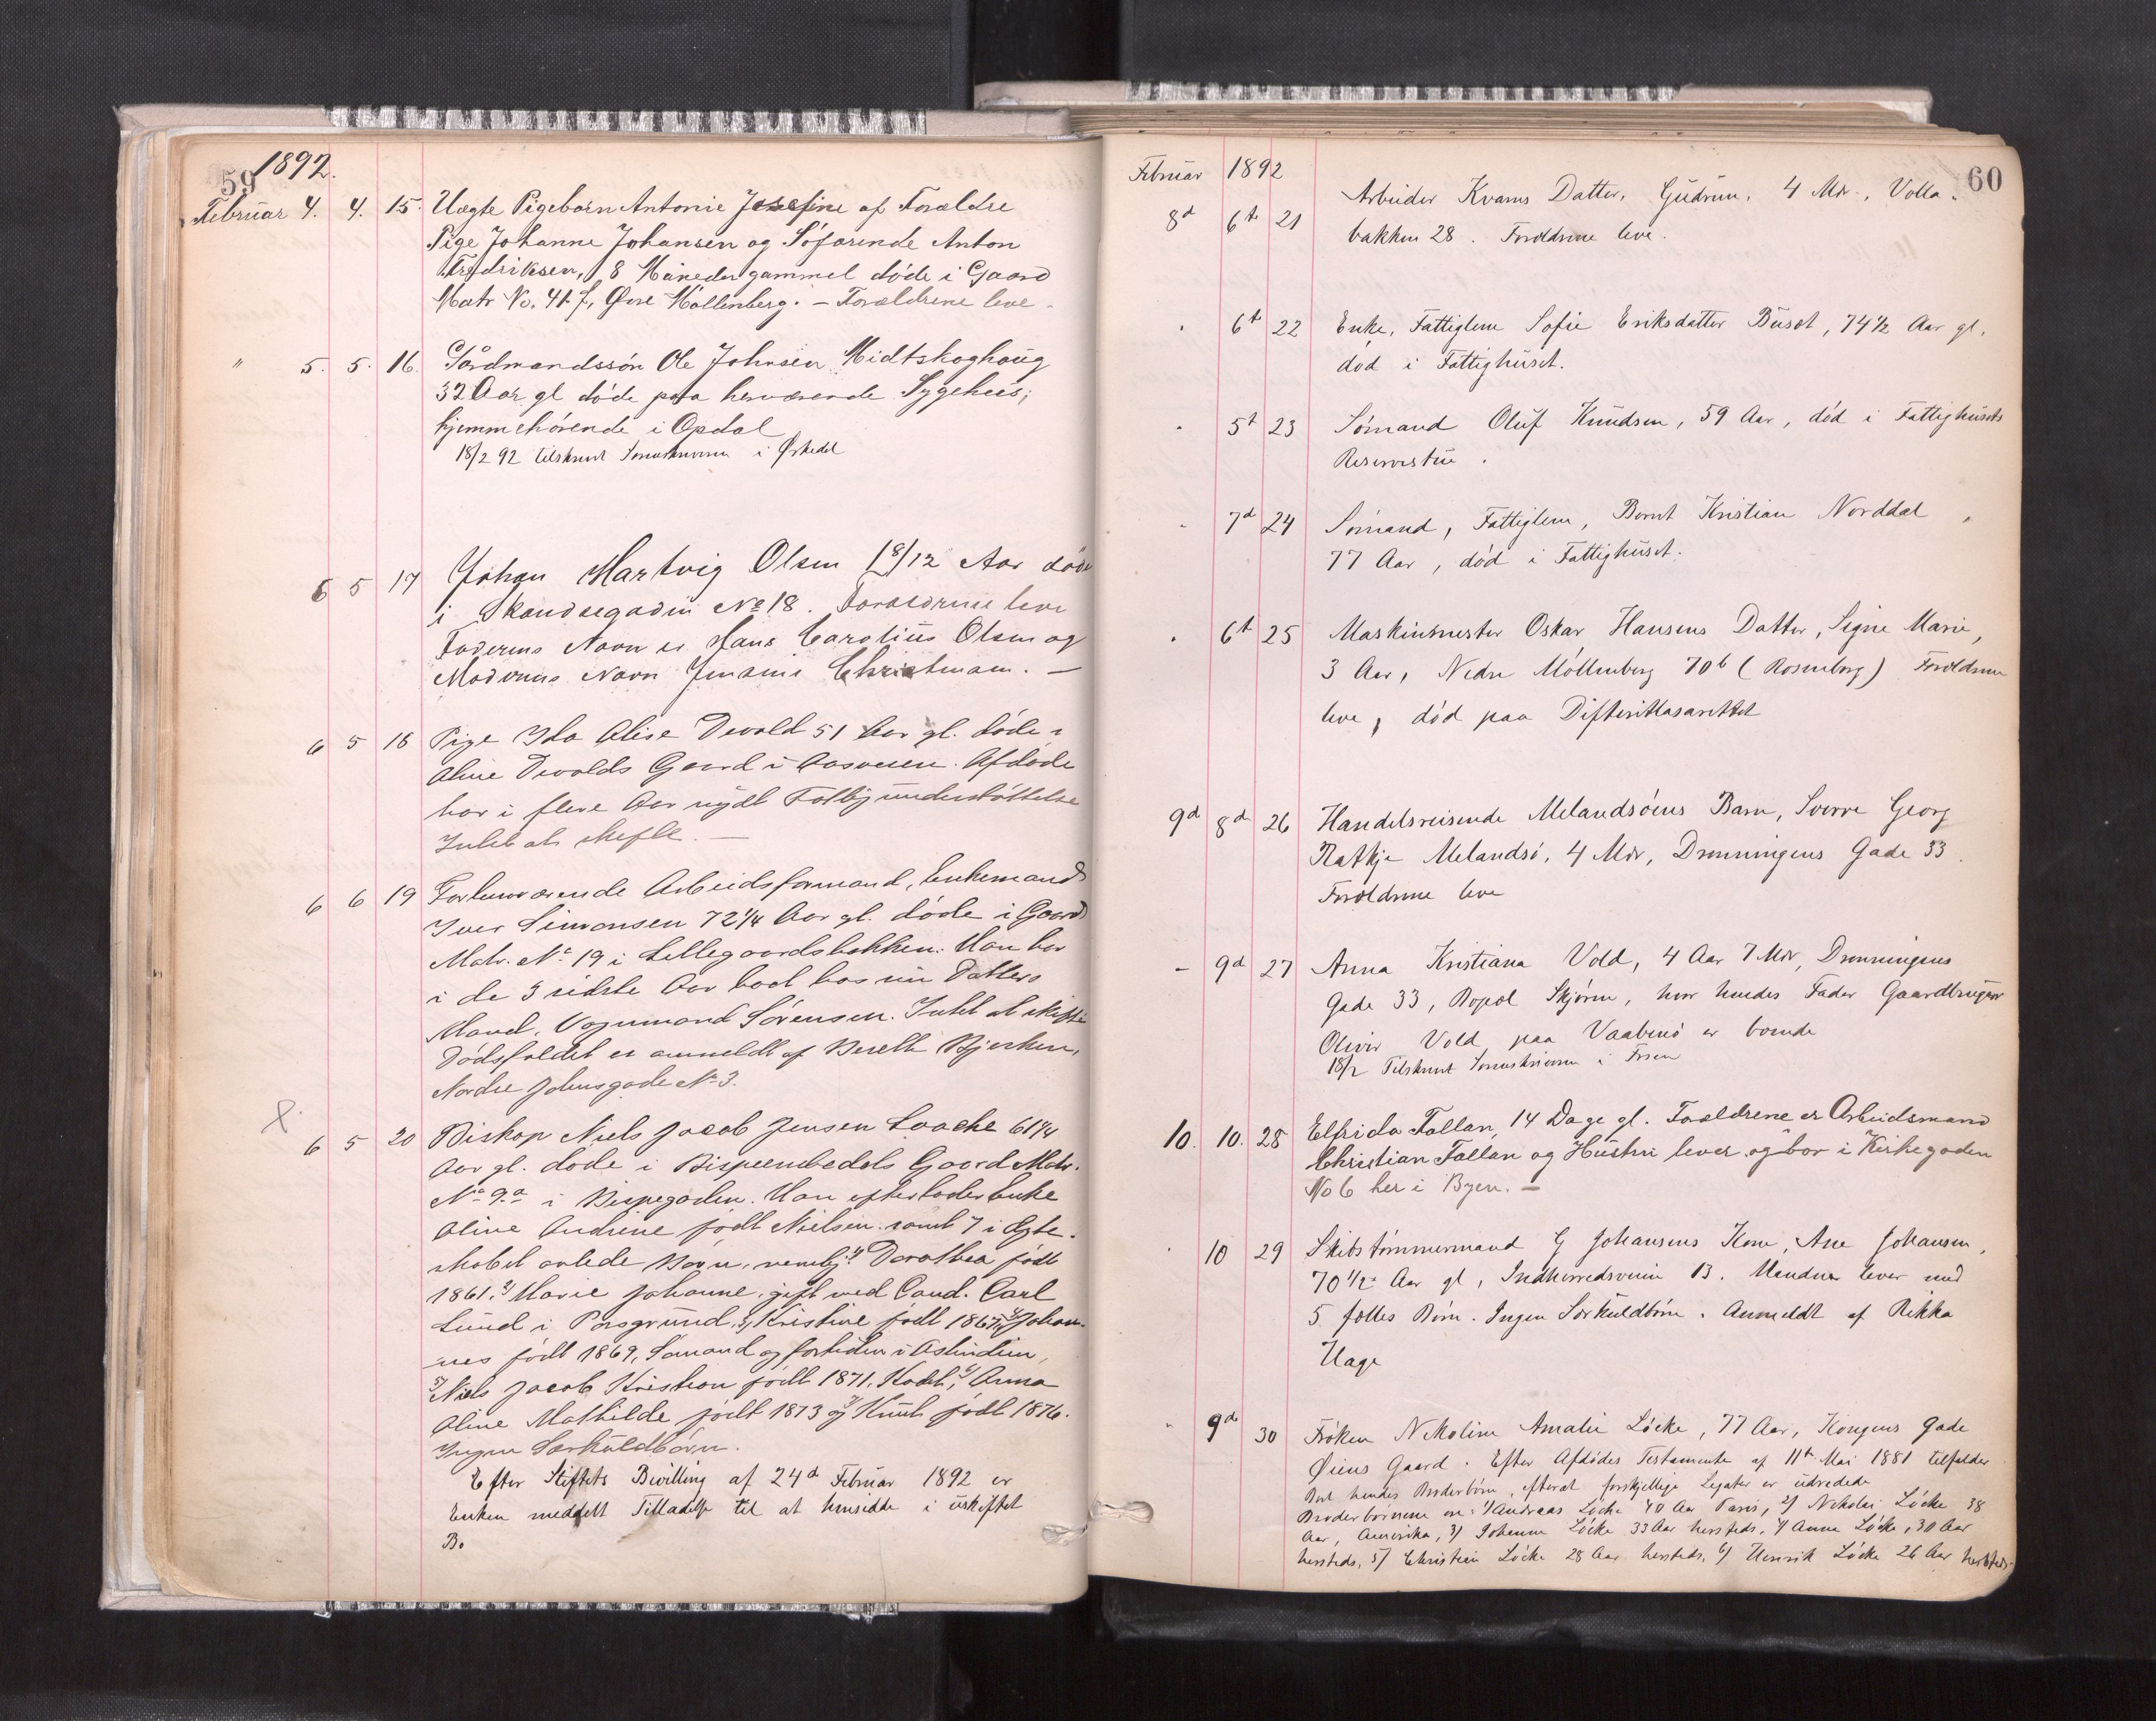 59 1892.
Februar 4. 4. 15. Uægte Pigebarn Antonie Josefine af Forældre
Pige Johanne Johansen og Søfarende Anton
Fredriksen, 8 Måneder gammel døde i Gaard
Matr No. 41 f, Øvre Møllenberg. – Forældrene leve.
" 5. 5. 16. Gårdmandssøn Ole Johnsen Midtskoghaug
32 Aar gl døde paa herværende Sygehus;
hjemmehørende i Opdal
18/2 92 tilskrevet Sorenskriveren i Orkedal
6 5 17 Johan Martvig Olsen 18/12 Aar døde
i Skandsegaden No 18. Forældrene leve
Faderens Navn er Hans Carolius Olsen og
Moderens Navn Christmann. —
6 5 18 Pige Ida Elise Devold 51 Aar gl. døde i
Aline Devolds Gaard i Aasveien. Afdøde
har i flere Aar nydt Fattigunderstøttelse
Intet at skifte. —
6 6 19 Forhenværende Arbeidsformand, Enkemand
Iver Simonsen 72 1/4 Aar gl. døde i Gaard
Matr. No 19 i Lillegaardsbakken. Han har
i de 3 sidste Aar boet hos sin Datters
Mand, Vognmand Sørensen. Intet at skifte
Dødsfaldet er anmeldt af Bereth Bjerken,
Nordre Johnsgade No 3.
6 5 20 Biskop Niels Jacob Jensen Laache 61 1/4
Aar gl. døde i Bispeembedets Gaard Matr.
No 9.a i Bispegaden. Han efterlader Enke
Aline Andrine født Nielsen samt 7 i Ægte-
skabet avlede Børn, nemlig: 1) Dorothea født
1861. 2) Marie Johanne, gift med Cand. Carl
Lund i Porsgrund, 3) Kristine født 1867, 4) Johan-
nes født 1869, Sømand og fortiden i Ostindien,
5) Niels Jacob Kristian født 1871, Kadet, 6) Anna
Aline Mathilde født 1873 og 7) Knut født 1876.
Ingen Særkuldbørn.
Efter Stiftets Bevilling af 24d Februar 1892 er
Enken meddelt Tilladelse til at hensidde i uskiftet
Bo
Februar 1892 60
8d 6te 21 Arbeider Kvams Datter, Gudrun, 4 Mdr., Volla-
bakken 28. Forældrene leve.
" 6te 22 Enke, Fattiglem Sofie Eriksdatter Buset, 74 1/2 Aar gl.
død i Fattighuset.
" 5t 23 Sømand Oluf Knudsen, 59 Aar, død i Fattighusets
Reservestue.
" 7d 24 Sømand, Fattiglem, Bernt Kristian Norddal,
77 Aar, død i Fattighuset.
" 6t 25 Maskinmester Oskar Hansens Datter, Signe Marie,
3 Aar, Nedre Møllenberg 70b (Rosenborg) Forældrene
leve, død paa Difteritlasarettet
9d 8d 26 Handelsreisende Melandsøens Barn, Sverre Georg
Ratkje Melandsø, 4 Mdr, Dronningens Gade 33.
Forældrene leve
– 9d 27 Anna Kristiana Vold, 4 Aar 7 Mdr, Dronningens
Gade 33, Bopæl Skjørn, hvor hendes Fader Gaardbruger
Oliver Vold paa Vaabenø er boende
18/2 Tilskrevet Sorenskriveren i Fosen
10. 10. 28 Elfrida Fallan, 14 Dage gl. Forældrene er Arbeidsmand
Christian Fallan og Hustru lever og bor i Kirkegaden
No 6 her i Byen. —
" 10 29 Skibstømmermand G Johansens Kone, Ane Johansen,
70 1/2 Aar gl, Indherredsveien 13. Manden lever med
5 fælles Børn. Ingen Særkuldbørn. Anmeldt af Rikka
Hage
" 9de 30 Frøken Nikoline Amalie Løcke, 77 Aar, Kongens Gade
Øiens Gaard. Efter Afdødes Testamente af 11te Mai 1881 tilfalder
Boet hendes Broderbørn, efterat forskjellige Legater er udredede
Broderbørnene ere: 1) Andreas Løcke 40 Aar Paris, 2) Nikolai Løcke 38
Aar, Amerika, 3) Johanne Løcke 33 Aar hersteds, 4) Anna Løcke, 30 Aar
hersteds, 5) Christian Løcke 28 Aar hersteds, 6) Henrik Løcke 26 Aar hersteds.